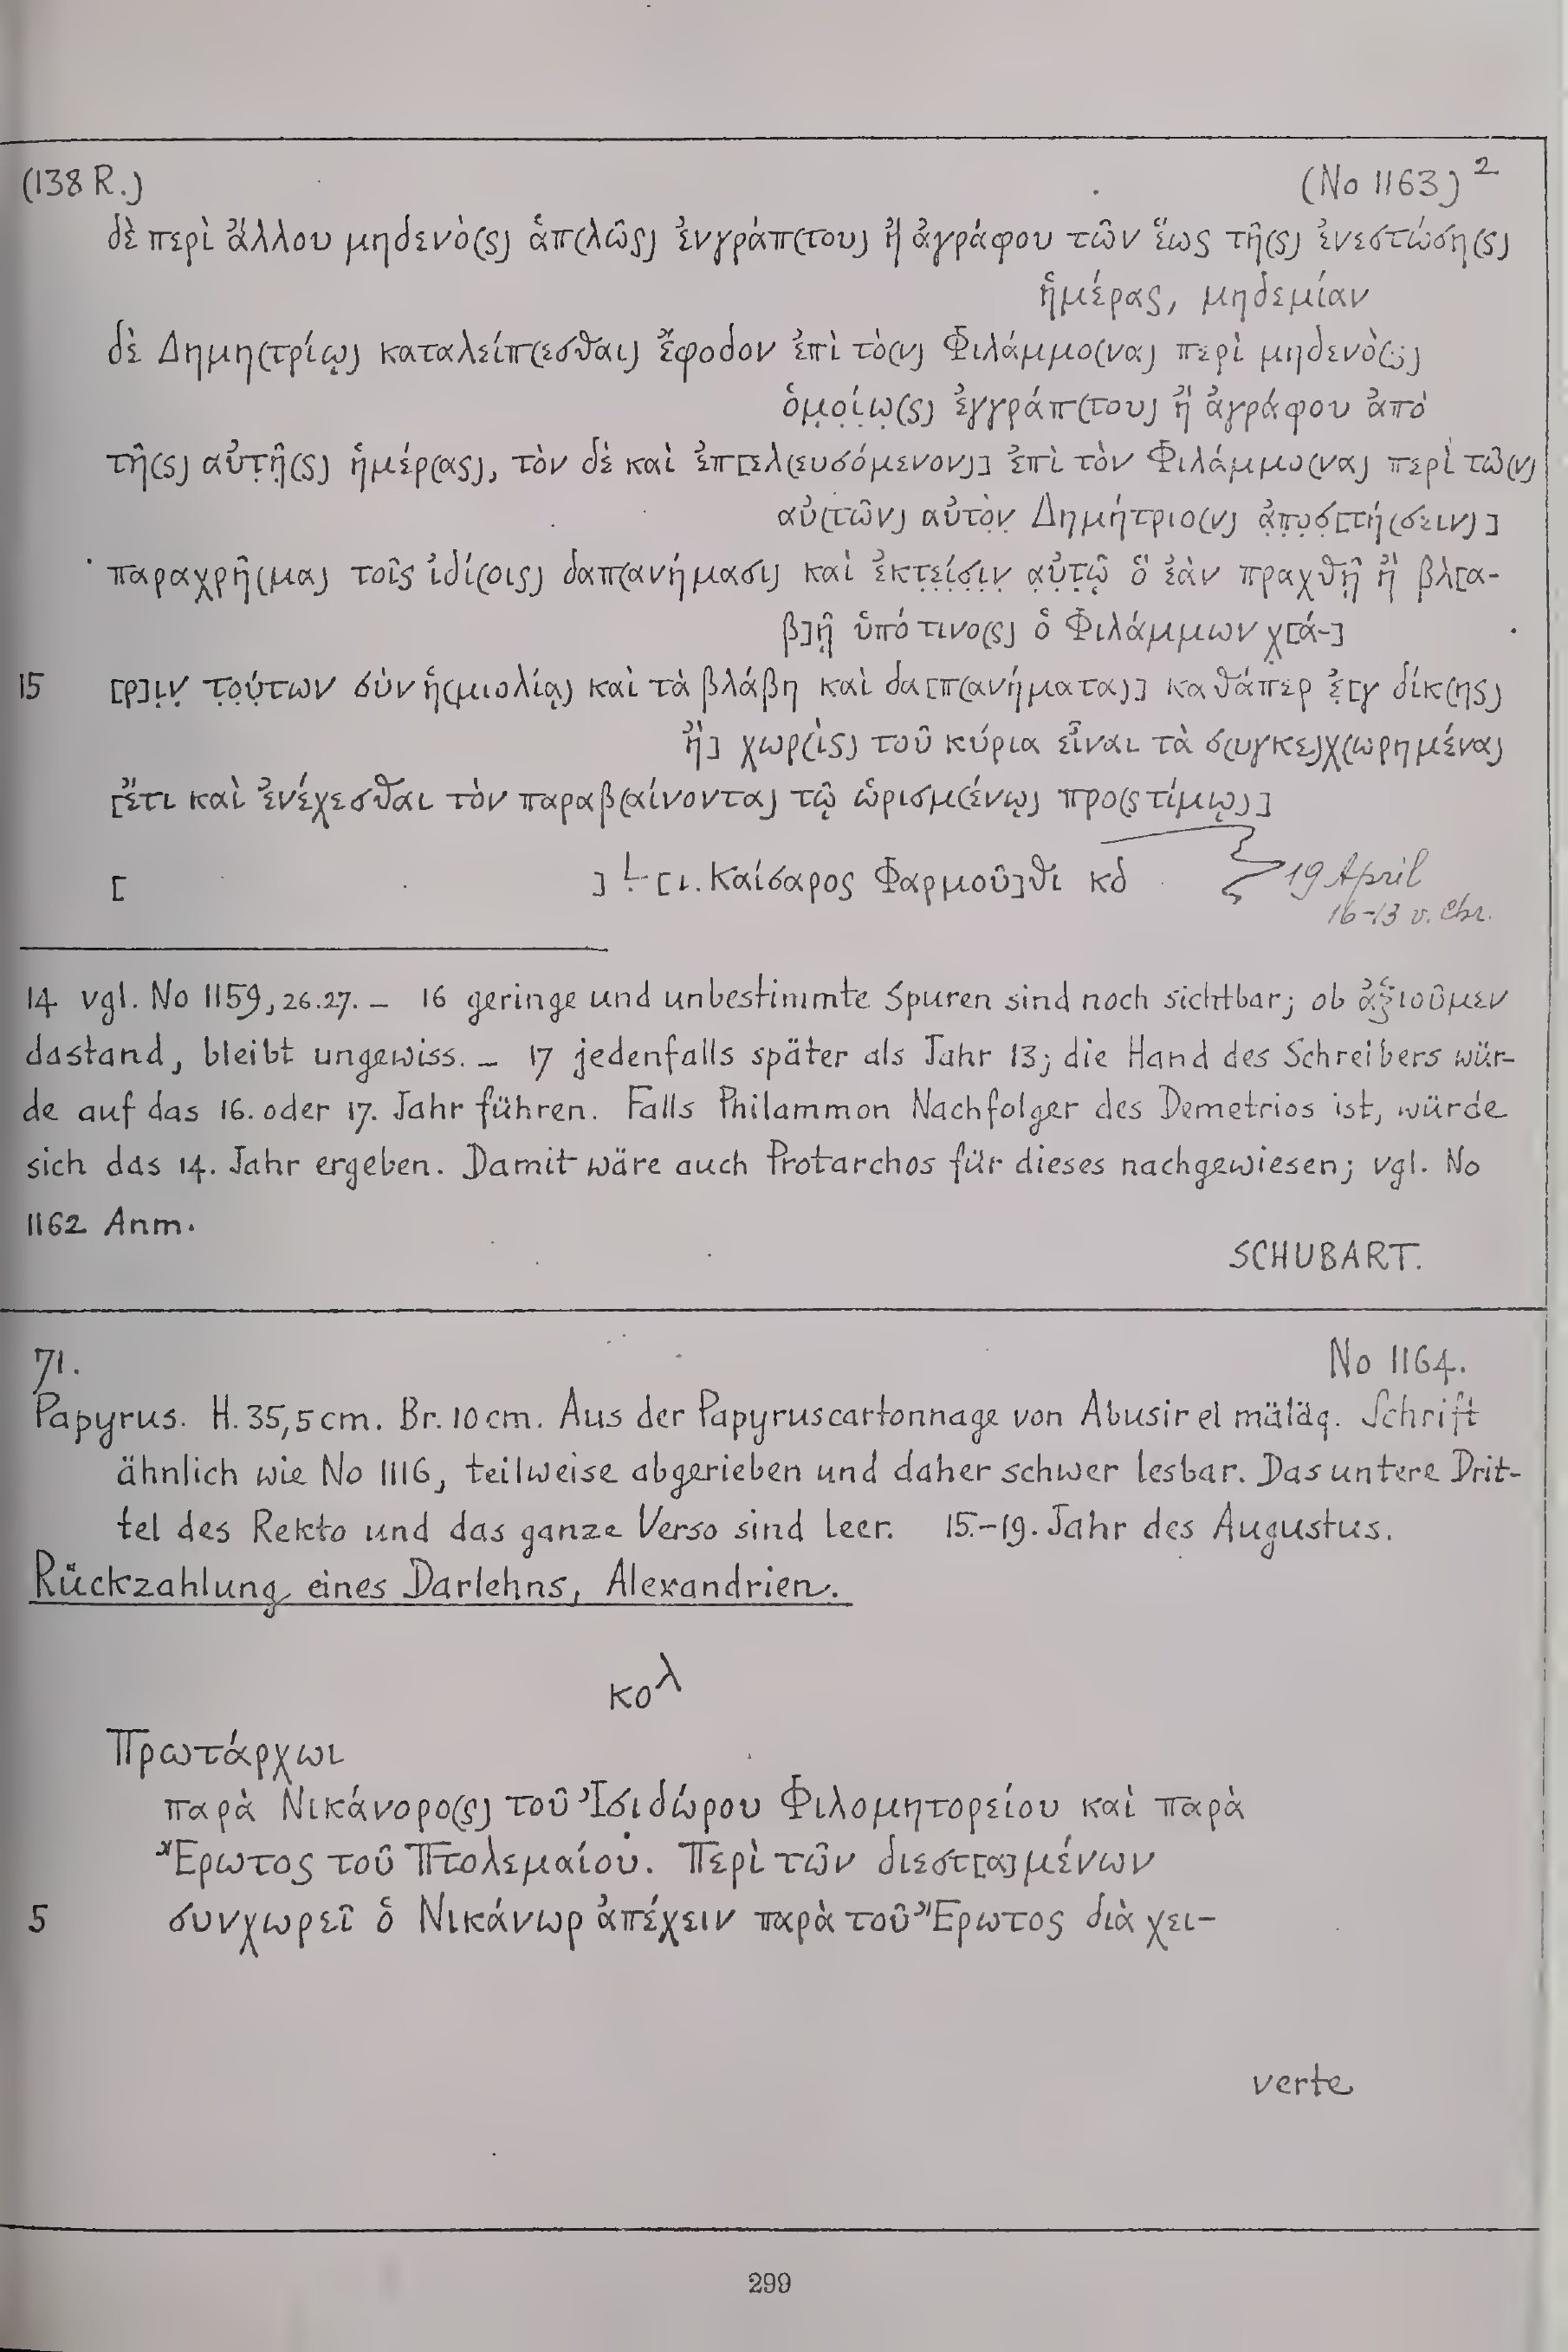 (138 R.)
(No 1163) 2
δὲ περὶ ἄλλου μηδενὸ(ς) ἁπ(λῶς) ἐνγράπ(του) ἢ ἀγράφου τῶν ἕως τῆ(ς) ἐνεστώση(ς)
ἡμέρας, μηδεμίαν
δὲ Δημη(τρίῳ) καταλείπ(εσθαι) ἔφοδον ἐπὶ τὸ(ν) Φιλάμμο(να) περὶ μηδενὸ(ς)
ὁμ̣ο̣ί̣ω̣(ς) ἐγγράπ(του) ἢ̣ ἀγρά̣φου ἀπὸ
τῆ(ς) αὐτ̣ῆ̣(ς) ἡμέρ(ας), τὸν δὲ καὶ ἐπ[ελ(ευσόμενον)] ἐπὶ τὸν Φιλάμμο(να) περὶ τῶ(ν)
αὐ(τῶν) αὐτὸ̣ν̣ Δημήτριο(ν) ἀ̣π̣ο̣σ̣[τή(σειν)]
παραχρῆ(μα) τοῖς ἰδί(οις) δαπ(ανήμασι) καὶ ἐκτ̣ε̣ί̣σ̣ι̣ν̣ α̣ὐ̣τ̣ῷ̣ ὃ ἐὰν πραχθῇ ἢ̣ βλ[α-
β]ῇ ὑπό τινο(ς) ὁ Φιλάμμων χ̣[ά-]
15 [ρ]ι̣ν̣ τ̣ο̣ύ̣των σὺν ἡ(μιολίᾳ) καὶ τὰ βλάβη καὶ δα[π(ανήματα)] καθάπερ ἐ̣[γ δίκ(ης)
ἢ] χωρ(ὶς) τοῦ κύρια εἶναι τὰ σ(υγκε)χ(ωρημένα)
[ἔτι καὶ ἐνέχεσθαι τὸν παραβ(αίνοντα) τῷ ὡρισμ(ένῳ) προ(ςτίμῳ)]
[ ] 𐅹 [ι. Καίσαρος Φαρμοῦ]θι κδ
19 April
16-13 v. Chr.
14 vgl. No 1159, 26.27. – 16 geringe und unbestimmte Spuren sind noch sichtbar; ob ἀξιοῦμεν
dastand, bleibt ungewiss. – 17 jedenfalls später als Jahr 13; die Hand des Schreibers wür-
de auf das 16. oder 17. Jahr führen. Falls Philammon Nachfolger des Demetrios ist, würde
sich das 14. Jahr ergeben. Damit wäre auch Protarchos für dieses nachgewiesen; vgl. No
1162 Anm.
SCHUBART.
71.
No 1164.
Papyrus. H. 35,5 cm. Br. 10 cm. Aus der Papyruscartonnage von Abusir el mäläq. Schrift
ähnlich wie No 1116, teilweise abgerieben und daher schwer lesbar. Das untere Drit-
tel des Rekto und das ganze Verso sind leer. 15.–19. Jahr des Augustus.
Rückzahlung eines Darlehns, Alexandrien.
κολ
Πρωτάρχωι
παρὰ Νικάνορο(ς) τοῦ Ἰσιδώρου Φιλομητορείου καὶ παρὰ
Ἔρωτος τοῦ Πτολεμαίου. Περὶ τῶν διεστ[α]μένων
5 συνχωρεῖ ὁ Νικάνωρ ἀπέχειν παρὰ τοῦ Ἔρωτος διὰ χει-
verte
299